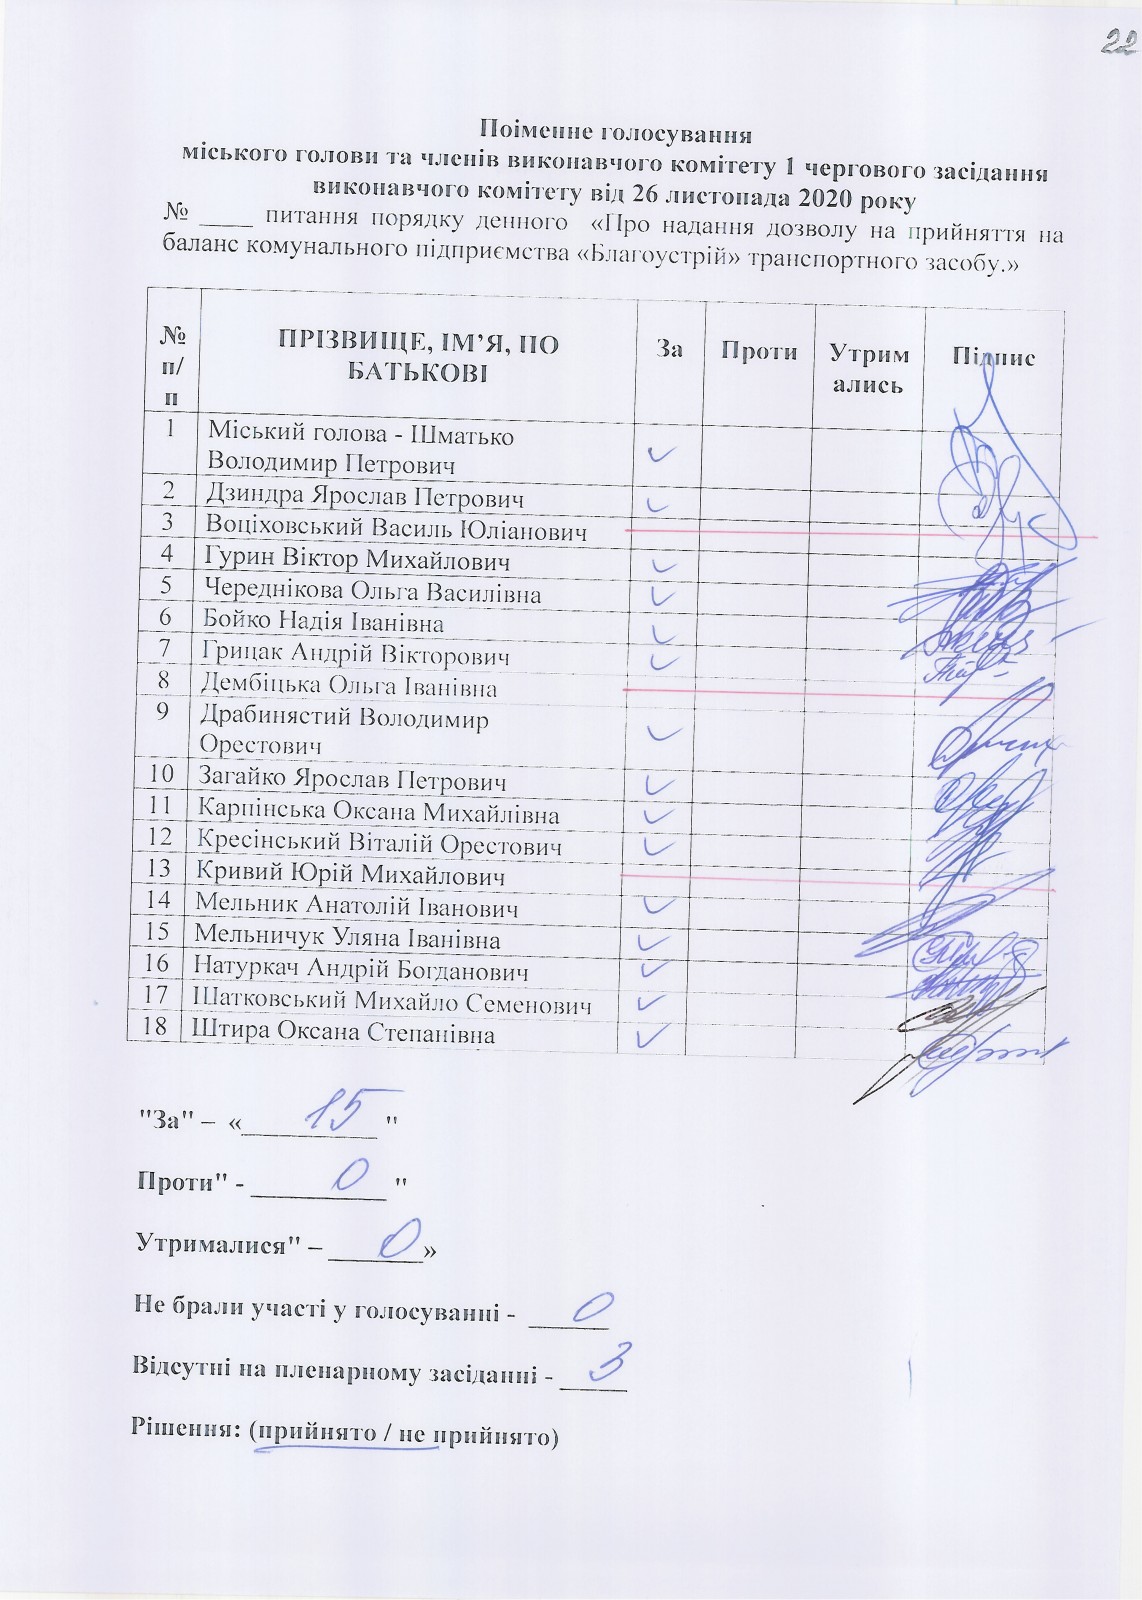 22
Поіменне голосування
міського голови та членів виконавчого комітету 1 чергового засідання
виконавчого комітету від 26 листопада 2020 року
№ ____ питання порядку денного «Про надання дозволу на прийняття на
баланс комунального підприємства «Благоустрій» транспортного засобу.»
№ п/п ПРІЗВИЩЕ, ІМ’Я, ПО БАТЬКОВІ За Проти Утримались Підпис
1 Міський голова - Шматько
Володимир Петрович ✓
2 Дзиндра Ярослав Петрович ✓
3 Воціховський Василь Юліанович
4 Гурин Віктор Михайлович ✓
5 Череднікова Ольга Василівна ✓
6 Бойко Надія Іванівна ✓
7 Грицак Андрій Вікторович ✓
8 Дембіцька Ольга Іванівна
9 Драбинястий Володимир
Орестович ✓
10 Загайко Ярослав Петрович ✓
11 Карпінська Оксана Михайлівна ✓
12 Кресінський Віталій Орестович ✓
13 Кривий Юрій Михайлович
14 Мельник Анатолій Іванович ✓
15 Мельничук Уляна Іванівна ✓
16 Натуркач Андрій Богданович ✓
17 Шатковський Михайло Семенович ✓
18 Штира Оксана Степанівна ✓
"За" – «____15____ "
Проти" - ____0____ "
Утрималися" – ____0____»
Не брали участі у голосуванні - ____0____
Відсутні на пленарному засіданні - ____3____
Рішення: (прийнято / не прийнято)